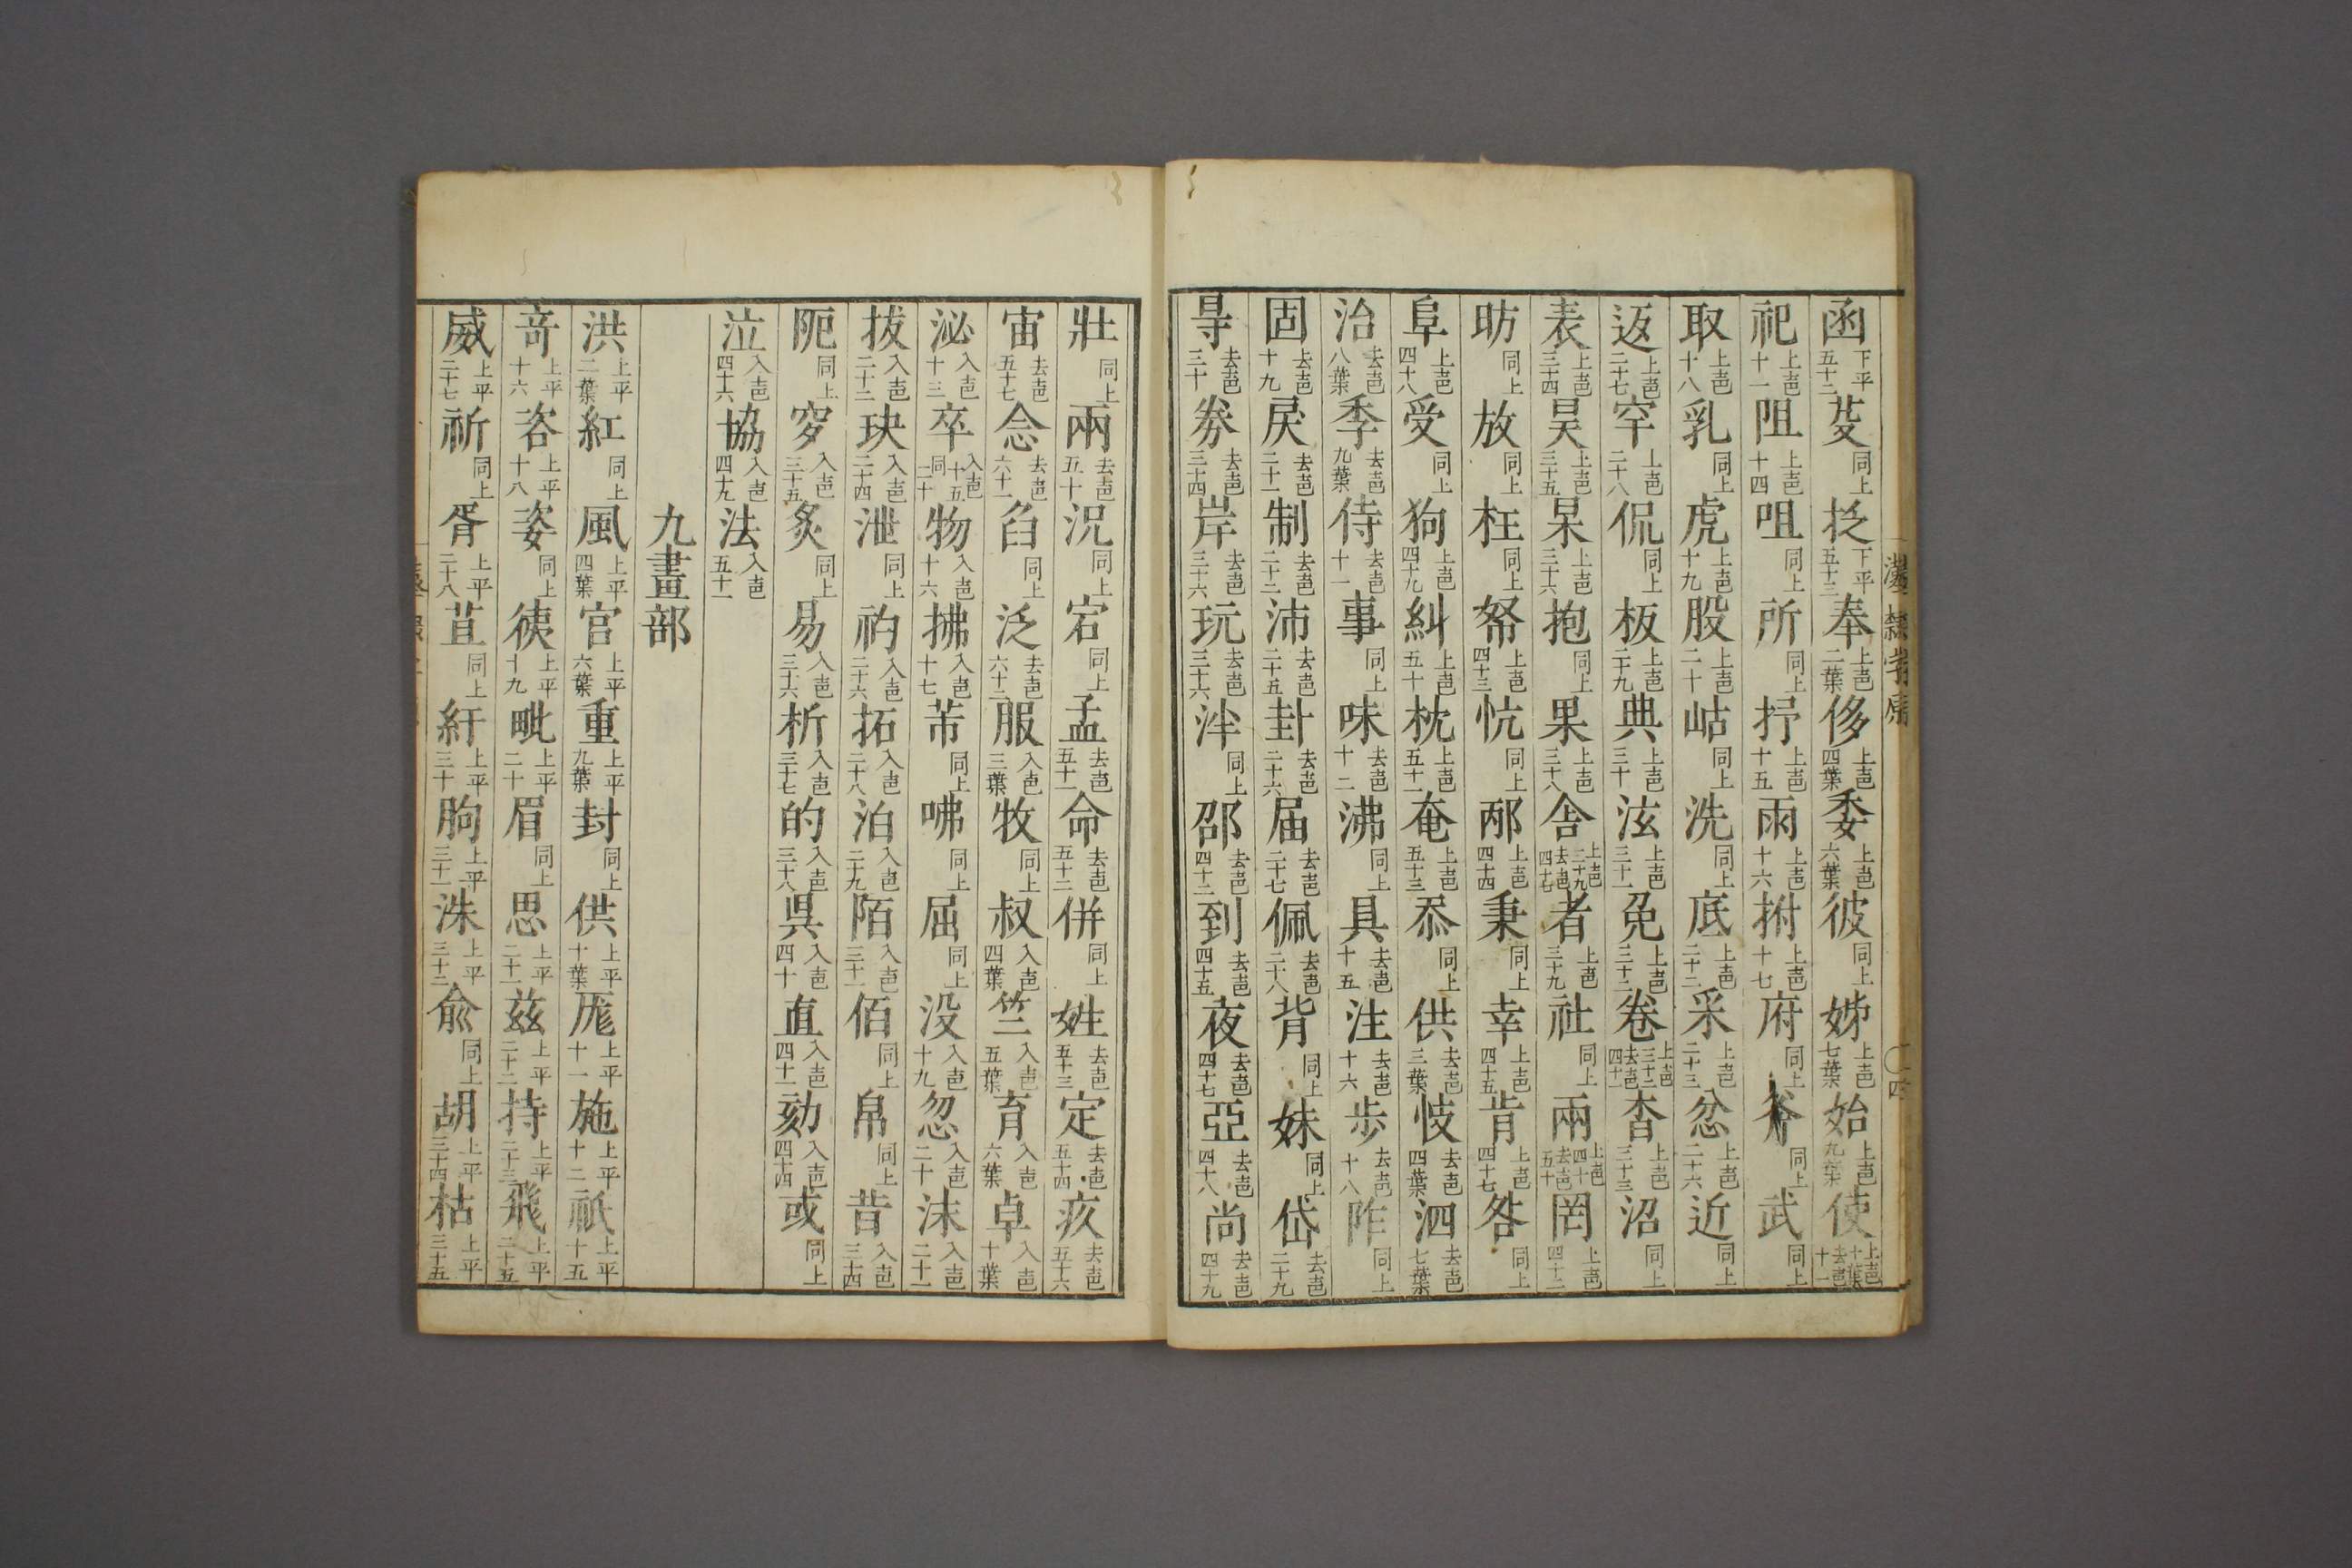 函下平五十二芟同上抂下平五十三奉上声二葉侈上声四葉委上声六葉彼同上姊上声七葉始上声九葉使上声十葉去声十一
祀上声十一阻上声十四咀同上所同上抒上声十五雨上声十六拊上声十七府同上斧同上武同上
取上声十八乳同上虎上声十九股上声二十岵同上洗同上底上声二十二采上声二十三忿上声二十六近同上
返上声二十七罕上声二十八侃同上板上声二十九典上声三十泫上声三十一免上声三十二卷上声三十二去声四十一杳上声三十三沼同上
表上声三十四昊上声三十五杲上声三十六抱同上果上声三十八舍上声三十九去声四十七者上声三十九社同上兩上声四十去声五十罔上声四十二
昉同上放同上枉同上帑上声四十三忼同上邴上声四十四秉同上幸上声四十五肯上声四十七咎同上
阜上声四十八受同上狗上声四十九糾上声五十枕上声五十一奄上声五十三忝同上供去声三葉忮去声四葉泗去声七葉
治去声八葉季去声九葉侍去声十一事同上味去声十二沸同上具去声十五注去声十六步去声十八阼同上
固去声十九戾去声二十一制去声二十二沛去声二十五卦去声二十六届去声二十七佩去声二十八背同上妹同上岱去声二十九
㝵去声三十券去声三十四岸去声三十六玩去声三十六泮同上邵去声四十二到去声四十五夜去声四十七亞去声四十八尚去声四十九
漢隸字源
四
壯同上兩去声五十況同上宕同上孟去声五十一命去声五十二併同上姓去声五十三定去声五十四疚去声五十六
宙去声五十七念去声六十一臽同上泛去声六十二服入声三葉牧同上叔入声四葉竺入声五葉育入声六葉卓入声十葉
泌入声十三卒入声十五同二十物入声十六拂入声十七芾同上咈同上屈同上没入声十九忽入声二十沫入声二十一
拔入声二十二玦入声二十四泄同上礿入声二十六拓入声二十八泊入声二十九陌入声三十一佰同上帛同上昔入声三十四
阸同上穸入声三十五炙同上易入声三十六析入声三十七的入声三十八狊入声四十直入声四十一劾入声四十四或同上
泣入声四十六協入声四十九法入声五十一
九畫部
洪上平二葉紅同上風上平四葉宫上平六葉重上平九葉封同上供上平十葉厖上平十一施上平十二祇上平十五
奇上平十六咨上平十八姿同上徖上平十九毗上平二十眉同上思上平二十一兹上平二十二持上平二十三飛上平二十五
威上平二十七祈同上胥上平二十八苴同上紆上平三十朐上平三十一洙上平三十二俞同上胡上平三十四枯上平三十五